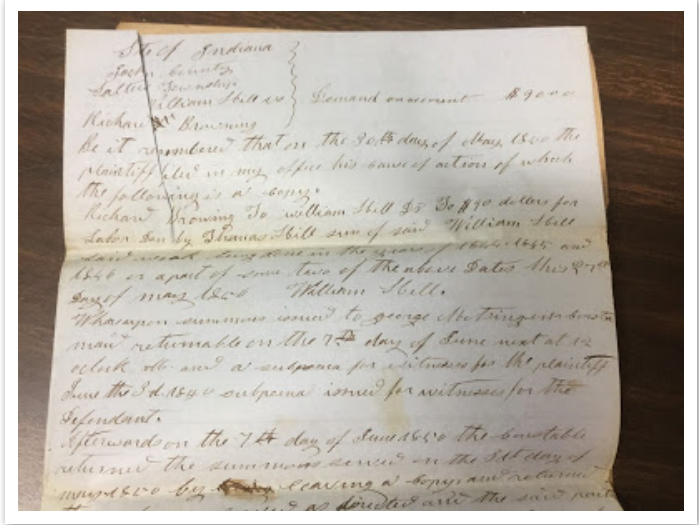 State of Indiana
County
Township
William Hill vs
Demand on account $90.00
Richard Browning
Be it remembered that on the 30th day of May 1850 the
plaintiff filed in my office his cause of action of which
the following is a copy.
Richard Browning To William Hill Dr To $90 dollars for
Labor Don by Thomas Hill sun of said William Hill
said work being done in the years of 1844 1845 and
1846 or a part of some two of the above Dates this
Day of may 1850 William Hill.
Whareupon summons issued to george
returnable on the 7th day of June next at 12
oclock and a subpoena for witnesses for the plaintiff
June the 3d subpoena issued for witnesses for the
Defendant.
Afterwards on the 7th day of June 1850 the Constable
returned the summons served on the 31st day of
may 1850 by leaving a copy and returned
as directed and the said